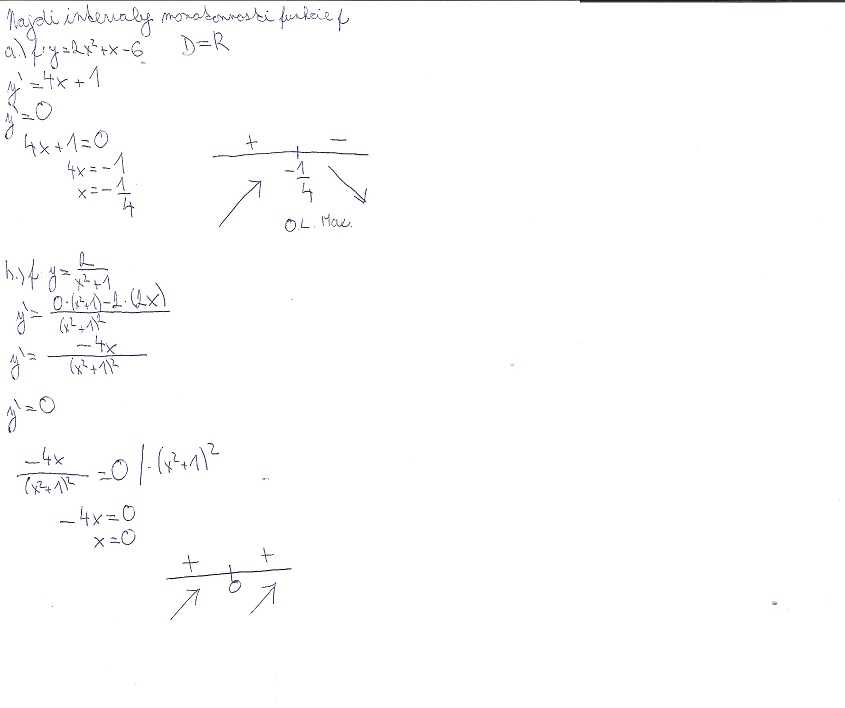 Najdi intervaly monotónnosti funkcie f
a.) f: y=2x²+x-6 D=R
y'=4x+1
y'=0
4x+1=0
4x=-1
x=-1/4
+ -
-1/4
O.L. Max.
b.) f y=2/(x²+1)
y'=(0·(x²+1)-2·(2x))/(x²+1)²
y'=-4x/(x²+1)²
y'=0
-4x/(x²+1)²=0 /·(x²+1)²
-4x=0
x=0
+ +
0